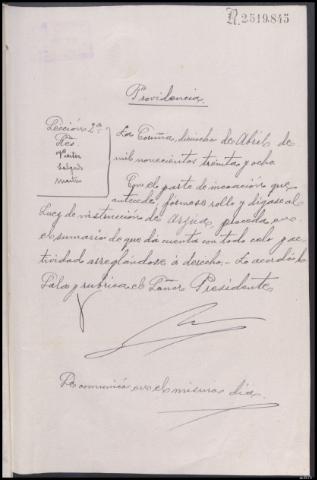 R.2519.845
Providencia.
Sección 2ª
Sres.
Salgado
La Coruña, dieciocho de Abril de
mil novecientos treinta y ocho
Con el parte de incoación que
antecede, fórmese rollo y dígase al
Juez de instrucción de Arzúa, proceda en
el sumario de que dá cuenta con todo celo y ac-
tividad arreglándose á derecho. Lo acordó la
Sala y rubrica el Señor Presidente
Se comunicó en el mismo día.